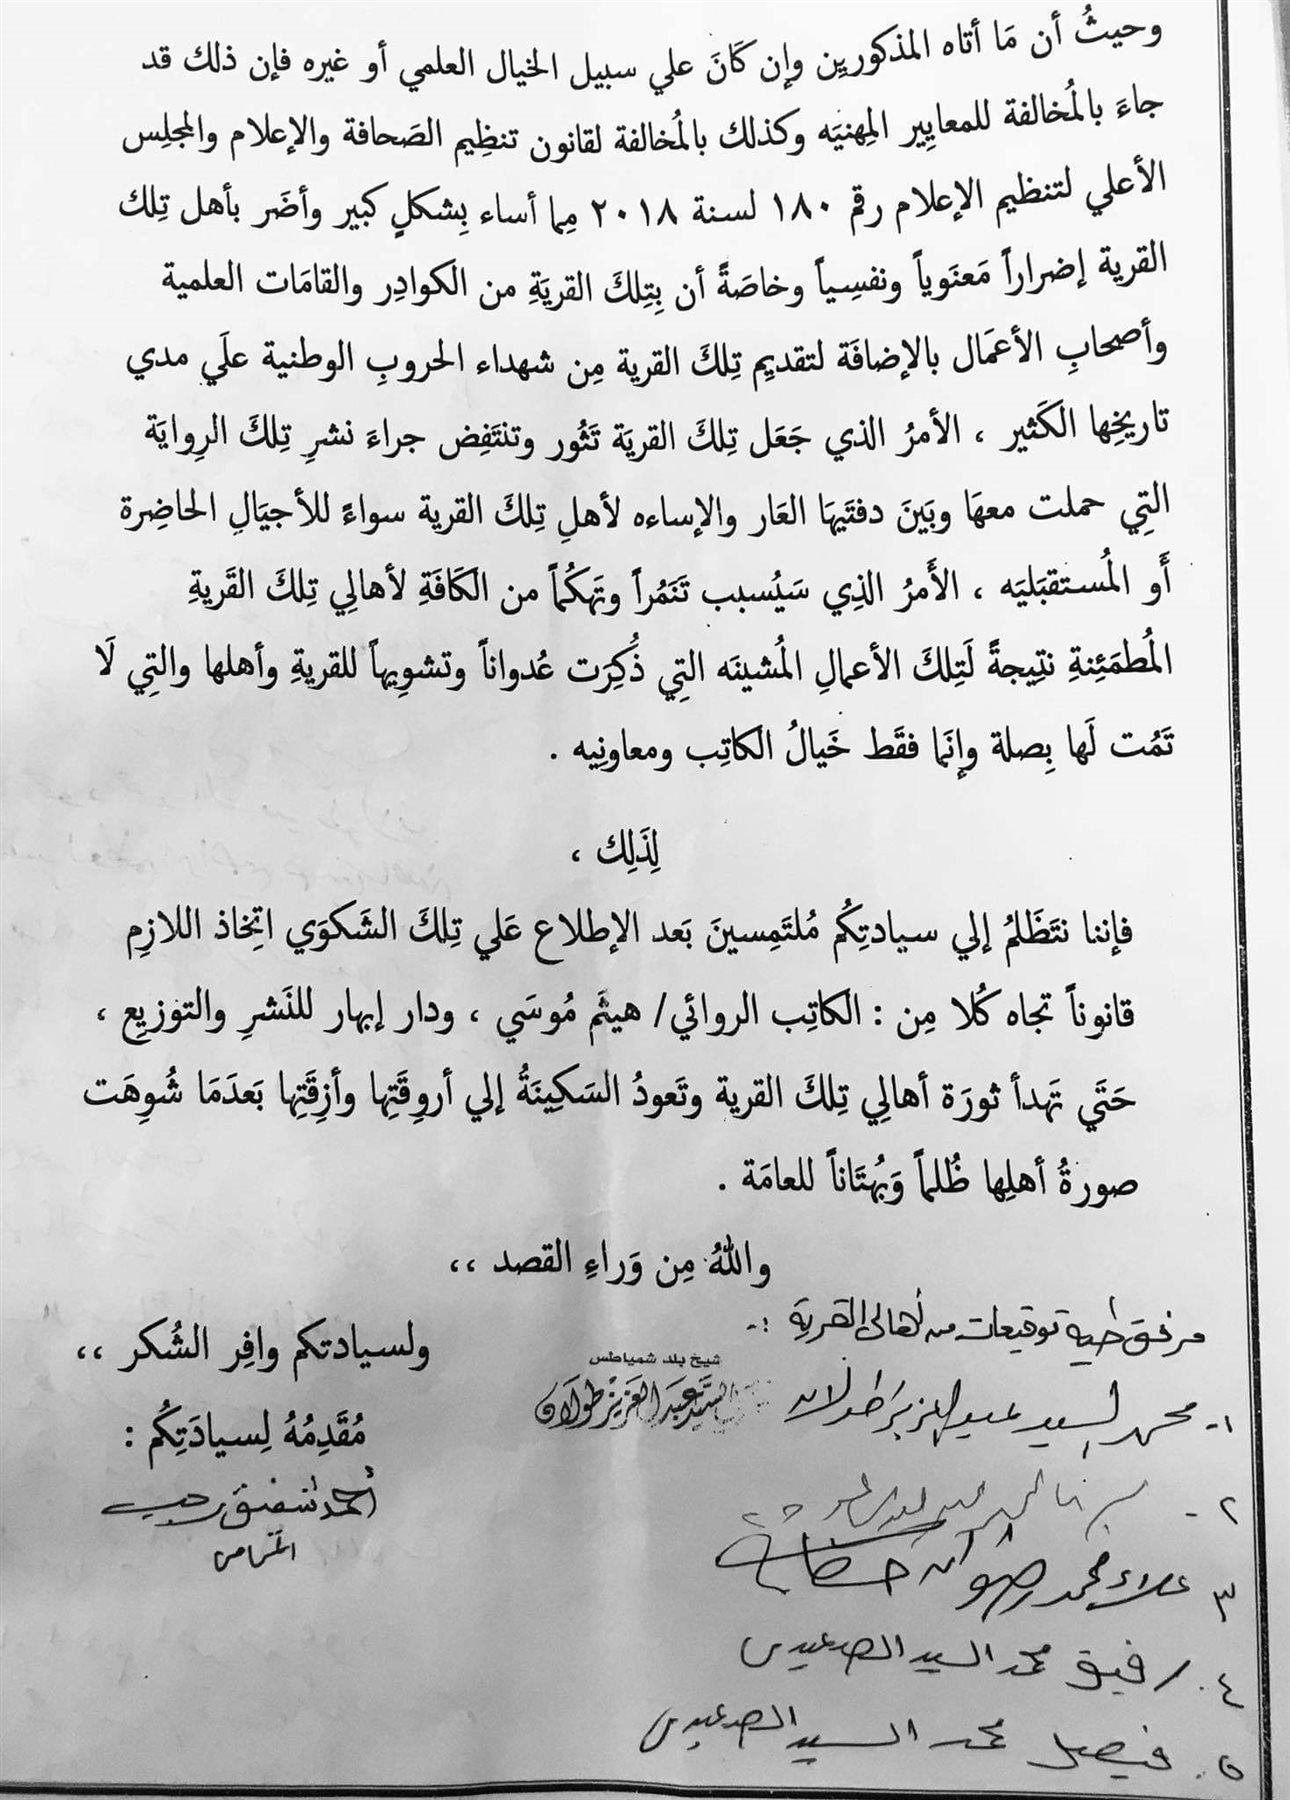 وحيثُ أن مَا أتاه المذكورين وإن كَانَ علي سبيل الخيال العلمي أو غيره فإن ذلك قد
جاءَ بالمُخالفة للمعايير المِهنيَه وكذلك بالمُخالفة لقانون تنظِيم الصَحافة والإعلام والمجلِس
الأعلي لتنظيم الإعلام رقم ١٨٠ لسنة ٢٠١٨ مِما أساء بِشكلٍ كبير وأضَر بأهل تِلك
القرية إضراراً مَعنَوياً ونفسِياً وخاصَةً أن بِتِلكَ القريَةِ من الكوادِر والقامَات العلمية
وأصحابِ الأعمَال بالإضافَة لتقديمِ تِلكَ القرية مِن شهداء الحروبِ الوطنية علَي مدي
تاريخِها الكَثير ، الأمرُ الذي جَعَل تِلكَ القريَة تَثُور وتنتَفِض جراءَ نشرِ تِلكَ الرِوايَة
التِي حملت معهَا وبَينَ دفتَيهَا العَار والإساءه لأهلِ تِلكَ القرية سواءً للأجيَالِ الحاضِرة
أَو المُستقبَليَه ، الأَمرُ الذِي سَيُسبب تَنَمُراً وتَهكُماً من الكَافَةِ لأهالِي تِلكَ القَريةِ
المُطمَئِنةِ نتِيجةً لَتِلكَ الأعمالِ المُشينَه التِي ذُكِرَت عُدواناً وتشوِيهاً للقريةِ وأهلها والتِي لَا
تَمُت لَها بِصلة وإنَما فقَط خَيالُ الكَاتِب ومعاونِيه .
لِذَلِك ،
فإننا نتَظَلمُ إلي سيادتِكُم مُلتَمِسينَ بَعد الإطلاع عَلي تِلكَ الشَكوَي اتِخاذ اللازِم
قانوناً تجاه كُلا مِن : الكاتِب الروائي/ هيثَم مُوسَي ، ودار إبهار للنَشرِ والتوزيعِ ،
حَتَّي تَهدأ ثورَة أهالِي تِلكَ القرية وتَعودُ السَكِينَةُ إلي أروِقَتِها وأزِقَتِها بَعدَمَا شُوِهَت
صورةُ أهلِها ظُلماً وَبُهتَاناً للعامَة .
واللهُ مِن وَراءِ القصد ،،
مرفق طيه توقيعات من أهالي القرية :-
ولسيادتكم وافِر الشُكر ،،
شيخ بلد شمياطس
السَّيد عَبد العَزيز طولان
١- محمد السيد عبد العزيز طولان
مُقَدِمُهُ لِسيادَتِكُم :
أحمد شفيق رجب
المحامي
٢-
٣ علاء محمد رضوان
٤. رفيق محمد السيد الصعيدي
٥. فيصل محمد السيد الصعيدي